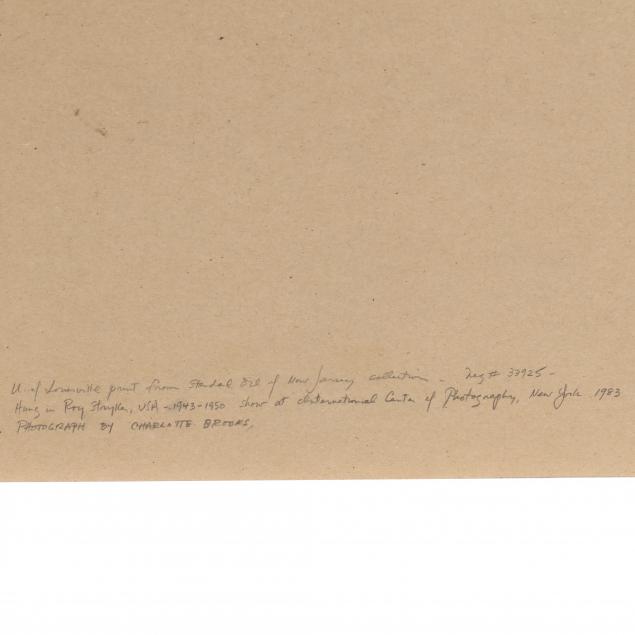 U. of Louisville print from Standard Oil of New Jersey collection - Neg # 33925 -
Hung in Roy Stryker, USA - 1943-1950 show at International Center of Photography, New York 1983
PHOTOGRAPH BY CHARLOTTE BROOKS,